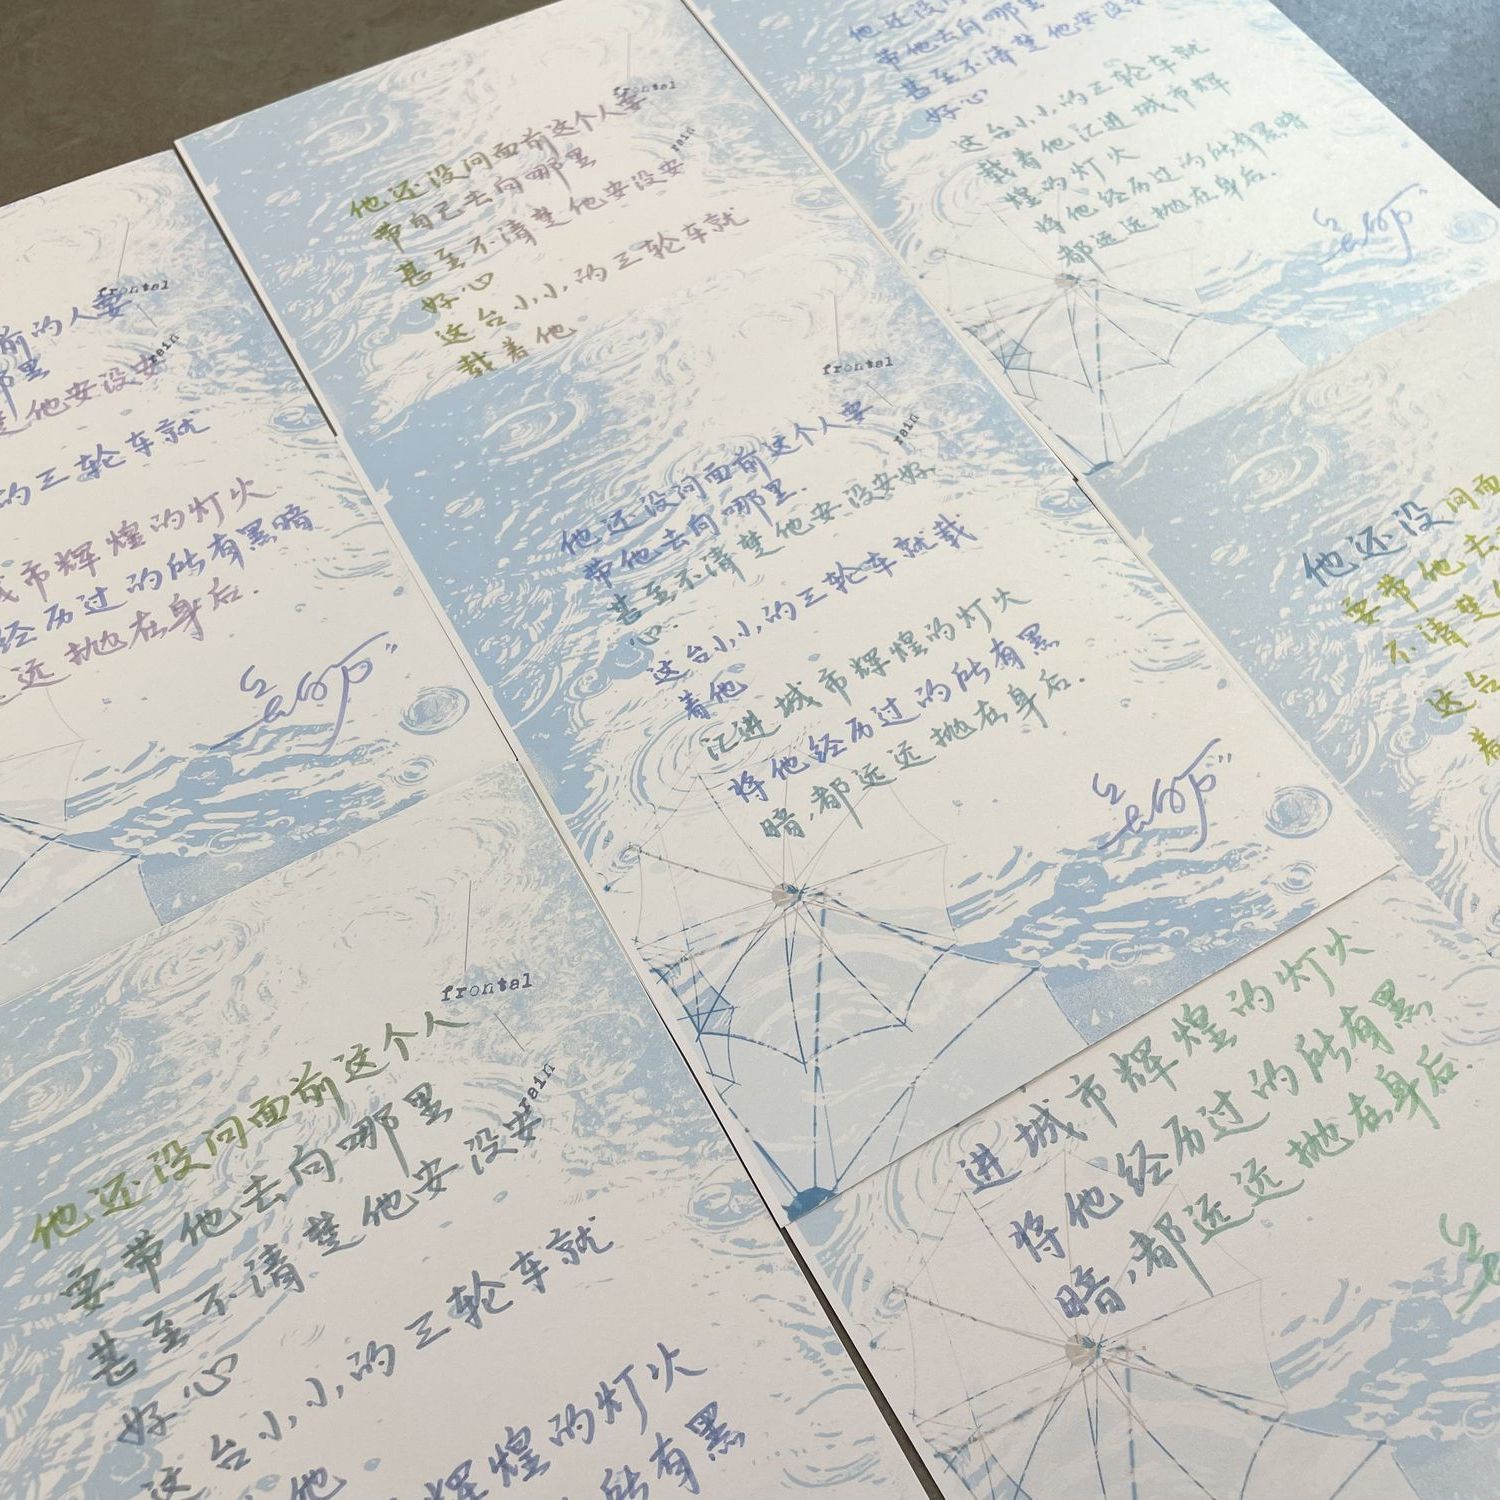 frontal
rain
他还没问面前这个人要
带自己去向哪里
甚至不清楚他安没安
好心
这台小小的三轮车就
载着他
他还没问
带他去向哪里
甚至不清楚他安没安
好心
这台小小的三轮车就
载着他汇进城市辉
煌的灯火
将他经历过的所有黑暗
都远远抛在身后.
frontal
rain
前的人要
那里
楚他安没安
的三轮车就
城市辉煌的灯火
经历过的所有黑暗
远抛在身后.
frontal
rain
他还没问面前这个人要
带他去向哪里.
甚至不清楚他安没安好
心.
这台小小的三轮车就载
着他
汇进城市辉煌的灯火
将他经历过的所有黑
暗,都远远抛在身后.
他还没问面
要带他去
不清楚
这台
着
frontal
rain
他还没问面前这个人
要带他去向哪里
甚至不清楚他安没安
好心
这台小小的三轮车就
他
辉煌的灯火
所有黑
进城市辉煌的灯火
将他经历过的所有黑
暗,都远远抛在身后.